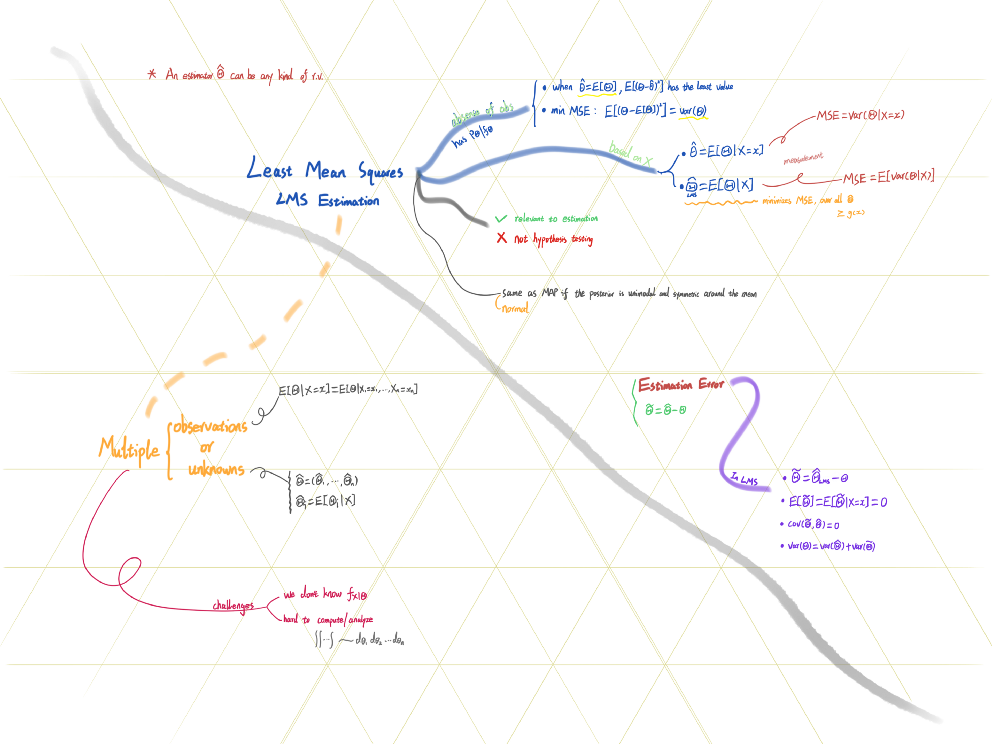 * An estimator Θ̂ can be any kind of r.v.
absence of obs
has PΘ|fΘ
• when θ̂=E[Θ], E[(Θ-θ̂)²] has the least value
• min MSE: E[(Θ-E[Θ])²] = var(Θ)
Least Mean Squares
LMS Estimation
based on X
• θ̂=E[Θ|X=x]
MSE=var(Θ|X=x)
measurement
• Θ̂LMS=E[Θ|X]
MSE=E[var(Θ|X)]
minimizes MSE, over all Θ̂
≥ g(x)
✓ relevant to estimation
✗ not hypothesis testing
same as MAP if the posterior is unimodal and symmetric around the mean
normal
Multiple
observations
or
unknowns
E[Θ|X=x]=E[Θ|X₁=x₁,...,Xₙ=xₙ]
Θ̂=(Θ̂₁,...,Θ̂ₙ)
Θ̂ⱼ=E[Θⱼ|X]
challenges
we don't know fX|Θ
hard to compute/analyze
∫∫···∫ ~ dθ₁ dθ₂ ...dθₙ
Estimation Error
Θ̃=Θ̂-Θ
In LMS
• Θ̃=Θ̂LMS-Θ
• E[Θ̃]=E[Θ̃|X=x]=0
• cov(Θ̃,Θ̂)=0
• var(Θ)=var(Θ̂)+var(Θ̃)